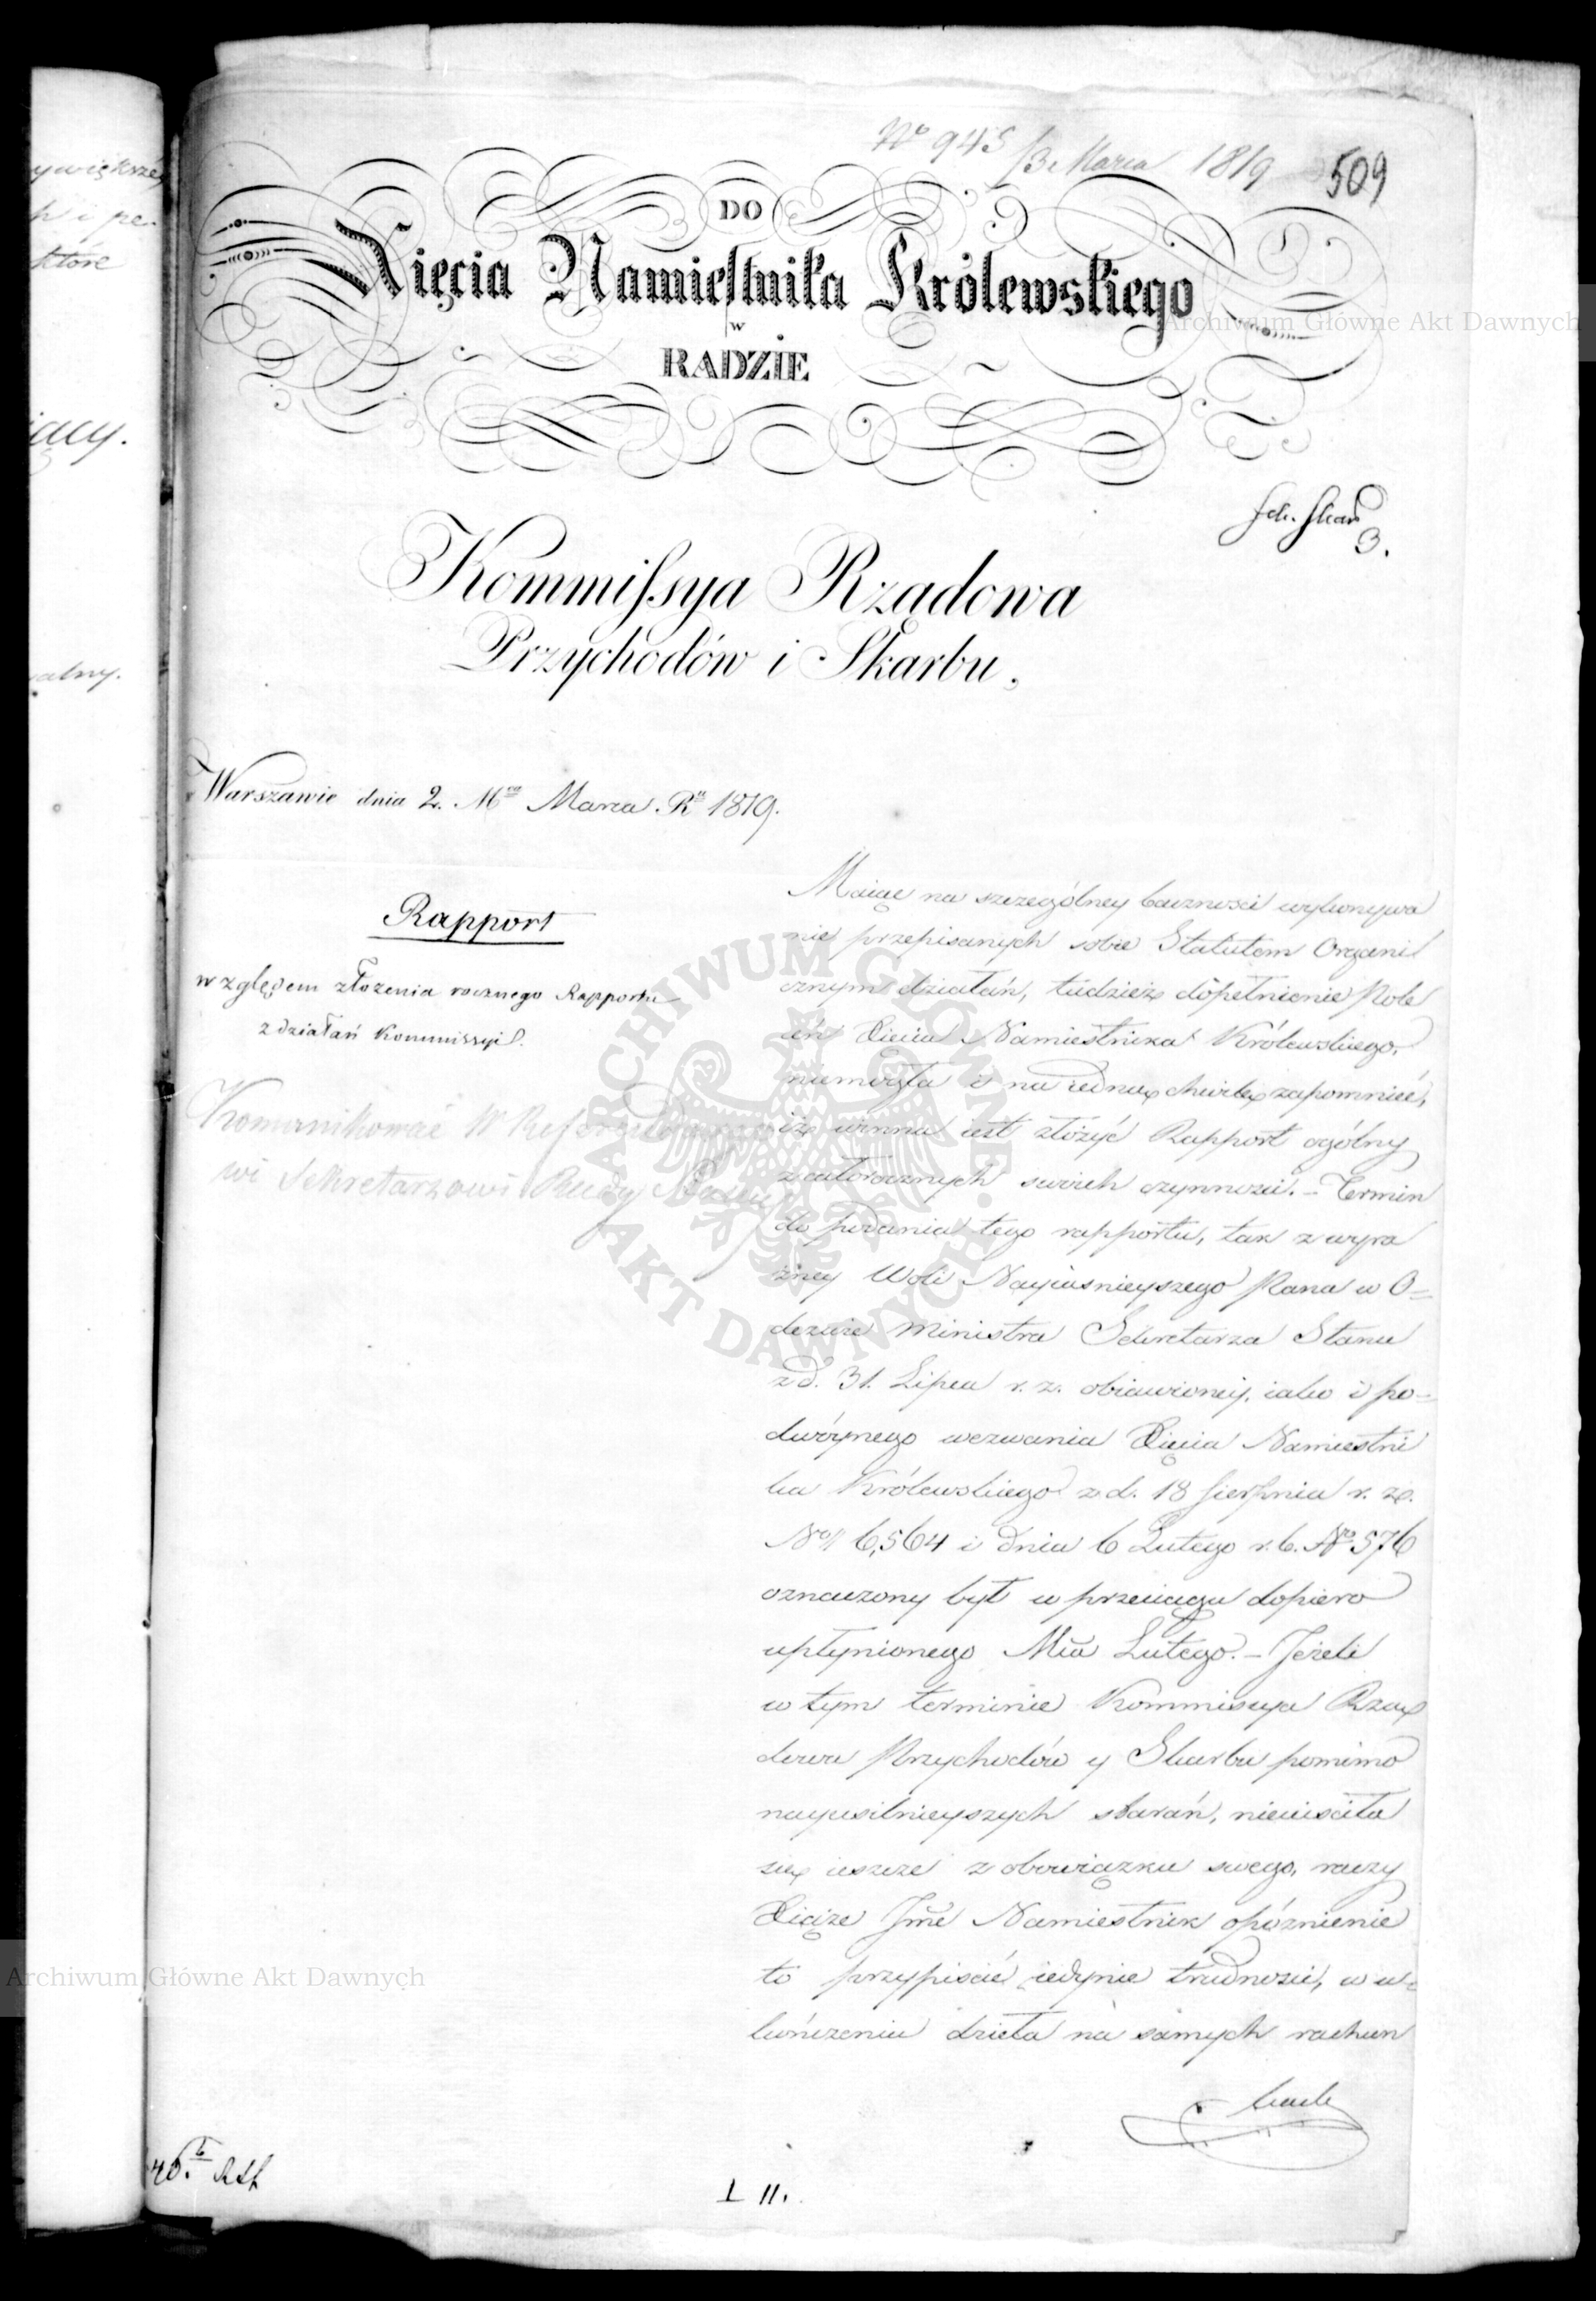 No 945 /3 Marca 1819
509
DO
Xięcia Namiestnika Królewskiego
w
RADZIE
Kommissya Rządowa
Przychodów i Skarbu,
Warszawie dnia 2. Mca Marca. Ru 1819.
Rapport
względem złożenia rocznego Rapportu
z działań Kommissyi.
Komunikować W Referendarzo
wi Sekretarzowi Rady Stanu
Maiąc na szczególney baczności wykonywa
nie przepisanych sobie Statutem Organi
cznym działań, tudzież dopełnienie Pole
ceń Xięcia Namiestnika Królewskiego,
niemogła i na iednę chwilę zapomnieć,
iż winna iest złożyć Rapport ogólny
z całorocznych swoich czynności. – Termin
do podania tego rapportu, tak z wyra
źney Woli Nayiaśnieyszego Pana w O=
dezwie Ministra Sekretarza Stanu
z d. 31. Lipca r. z. obiawioney, iako i po=
dwóynego wezwania Xięcia Namiestni
ka Królewskiego z d. 18 Sierpnia r. z.
No 6,564 i dnia 6 Lutego r. b. No 576
oznaczony był w przeciągu dopiero
upłynionego Mca Lutego. – Jeżeli
w tym terminie Kommissya Rzą
dowa Przychodów y Skarbu pomimo
nayusilnieyszych starań, nieuiściła
się ieszcze z obowiązku swego, raczy
Xiąże Jmć Namiestnik opóźnienie
to przypisać iedynie trudności, w u=
kończeniu dzieła na samych rachun
L II.
Archiwum Główne Akt Dawnych
Archiwum Główne Akt Dawnych
ARCHIWUM GŁÓWNE AKT DAWNYCH